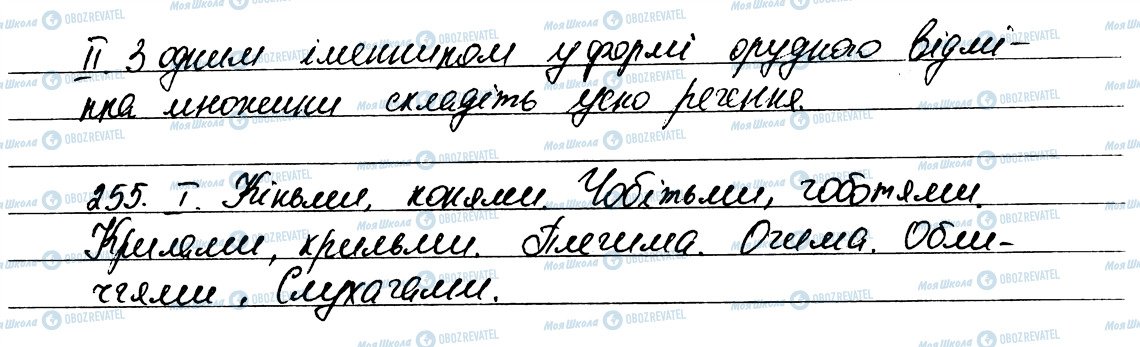 II З одним іменником у формі орудного відмі-
нка множини складіть усно речення.
255. I. Кіньми, конями. Чобітьми, чоботями.
Крилами, крильми. Плечима. Очима. Обли-
ччями. Слухачами.